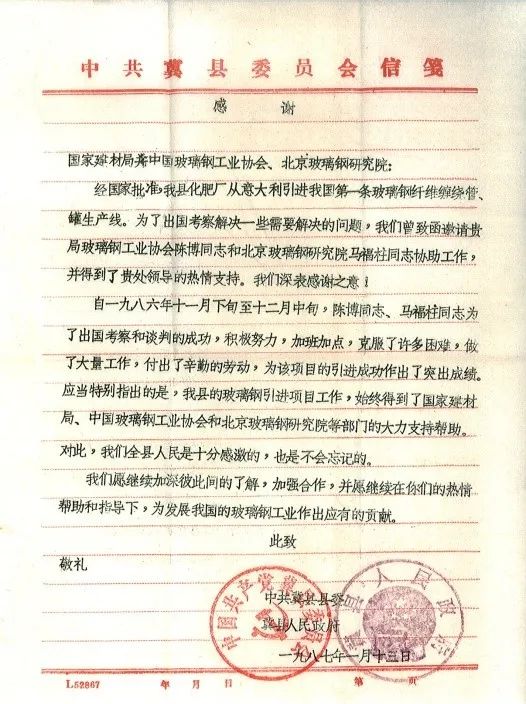 中共冀县委员会信笺
感 谢
国家建材局粪中国玻璃钢工业协会、北京玻璃钢研究院:
经国家批准,我县化肥厂从意大利引进我国第一条玻璃钢纤维缠绕管、
罐生产线。为了出国考察解决一些需要解决的问题,我们曾致函邀请贵
局玻璃钢工业协会陈博同志和北京玻璃钢研究院马福柱同志协助工作,
并得到了贵处领导的热情支持。我们深表感谢之意!
自一九八六年十一月下旬至十二月中旬,陈博同志、马福柱同志为
了出国考察和谈判的成功,积极努力,加班加点,克服了许多困难,做
了大量工作,付出了辛勤的劳动,为该项目的引进成功作出了突出成绩。
应当特别指出的是,我县的玻璃钢引进项目工作,始终得到了国家建材
局、中国玻璃钢工业协会和北京玻璃钢研究院等部门的大力支持帮助。
对此,我们全县人民是十分感激的,也是不会忘记的。
我们愿继续加深彼此间的了解,加强合作,并愿继续在你们的热情
帮助和指导下,为发展我国的玻璃钢工业作出应有的贡献。
此致
敬礼
中共冀县县委
冀县人民政府
一九八七年一月十三日
中国共产党冀县委员会
冀县人民政府
L52867 年 月 日 第 页